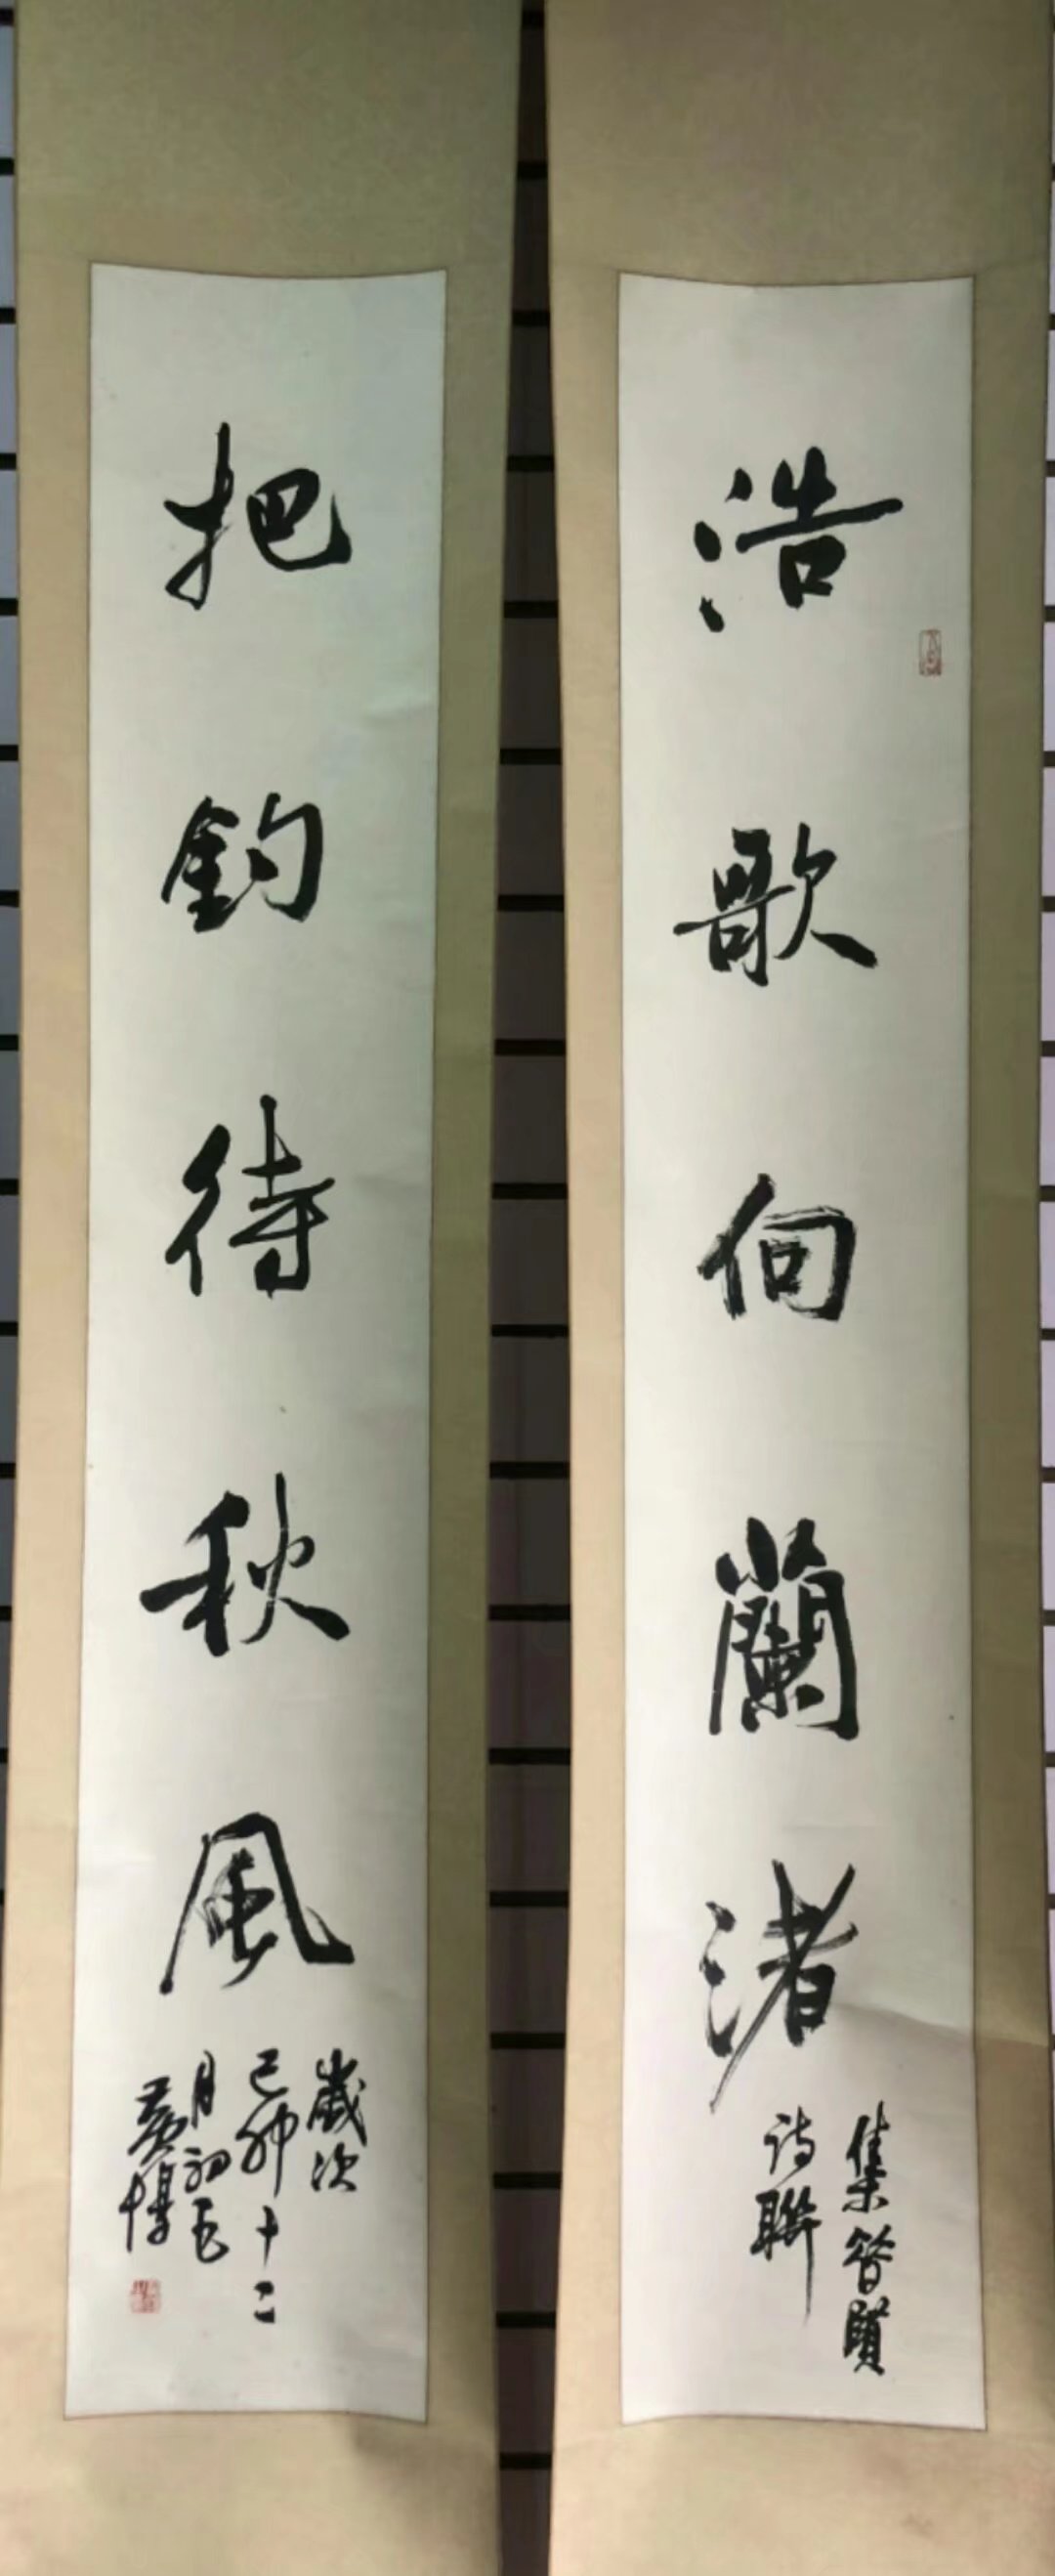 浩歌向蘭渚
集昝賢
詩聯
把釣待秋風
歲次
己卯十二
月初五
黃惇